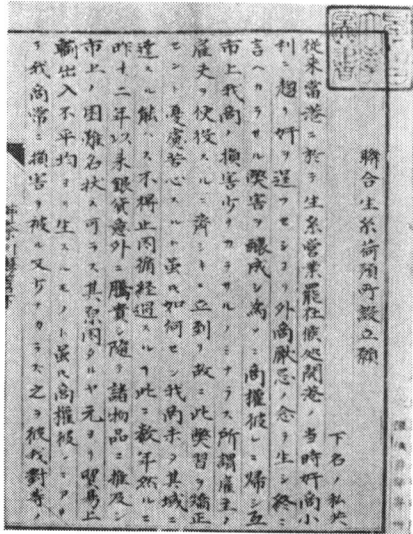 聯合生糸荷預所設立願
下名ノ私共
従来當港ニ於テ生糸営業罷在候処開港ノ當時奸商小
利ニ趨リ奸ヲ逞フセシヨリ外商厭忌ノ念ヲ生シ終ニ
言ヘカラサル弊害ヲ醸成シ為ニ商権彼レニ帰シ互
市上我商ノ損害少ナカラサルノミナラス所謂雇主ノ
雇夫ヲ使役スルニ斉シキニ立到ル故ニ此弊習ヲ矯正
セント憂慮苦心スルト虽モ如何セン我商未タ其域ニ
達スル能ハス不得止因循経過スルコト此ニ数年然ルニ
昨十二年以来銀貨意外ニ騰貴シ随テ諸物品ニ推及シ
市上ノ困難名状ス可ラス其原因タルヤ元ヨリ貿易上
輸出入不平均ヨリ生スルモノト虽モ商権彼レニアリ
テ我商常ニ損害ヲ被ル又少ナカラス之ヲ彼我對等ノ